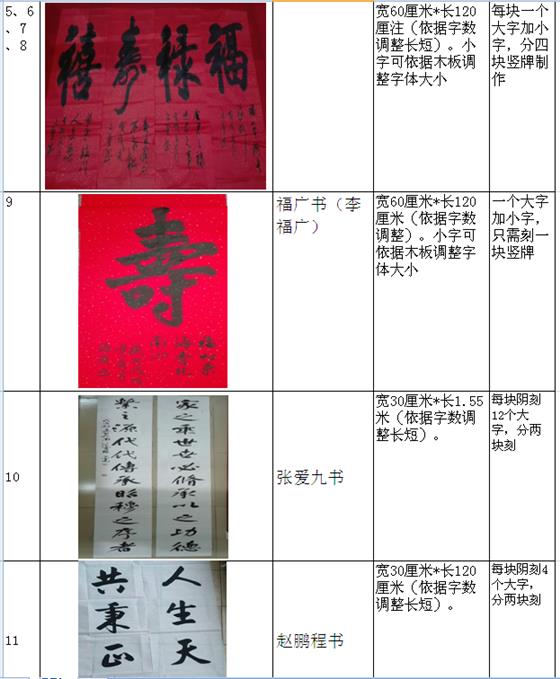 5、
6
、7
、8
福
禄
寿
禧
宽60厘米*长120
厘注（依据字数
调整长短）。小
字可依据木板调
整字体大小
每块一个
大字加小
字，分四
块竖牌制
作
9
壽
福广书（李
福广）
宽60厘米*长120
厘米（依据字数
调整）。小字可
依据木板调整字
体大小
一个大字
加小字，
只需刻一
块竖牌
10
家之乘世世必脩承以之功德
之源代代傳承昭穆之序者
张爱九书
宽30厘米*长1.55
米（依据字数调
整长短）。
每块阴刻
12个大
字，分两
块刻
11
人生天
共秉正
赵鹏程书
宽30厘米*长120
厘米（依据字数
调整长短）。
每块阴刻4
个大字，
分两块刻